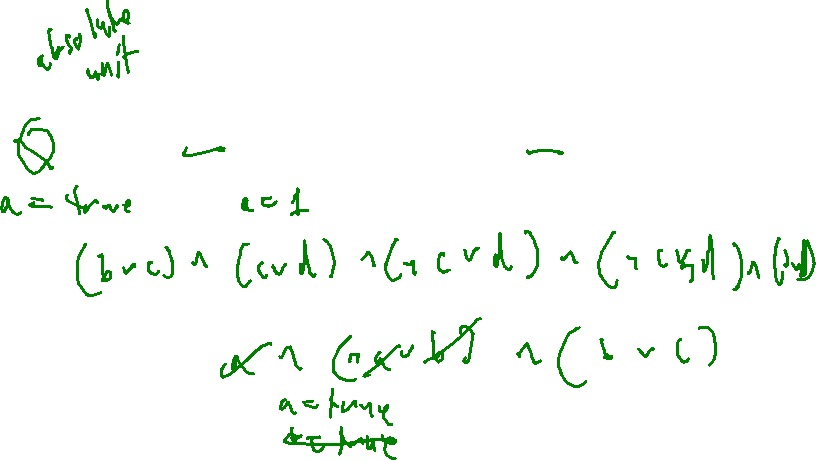 absolute
unit
a = true a = 1
(b ∨ c) ∧ (c ∨ d) ∧ (¬ c ∨ d) ∧ (¬ c ∨ ¬ d) ∧
a ∧ (¬ a ∨ b) ∧ (b ∨ c)
a = true